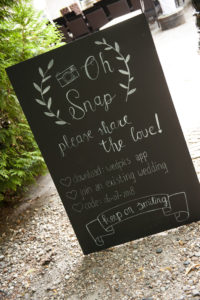 Oh
Snap
please share
the love!
download: wedpics app
join an existing wedding
code:
Keep on Smiling